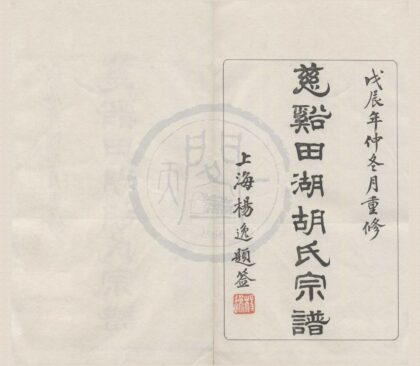 戊辰年仲冬月重修
慈谿田湖胡氏宗譜
上海楊逸題簽